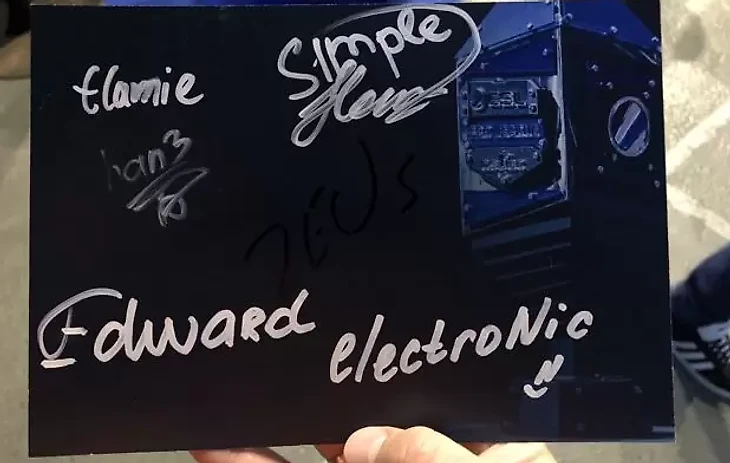 flamie
Simple
han3
ZEUS
Edward
electroNic